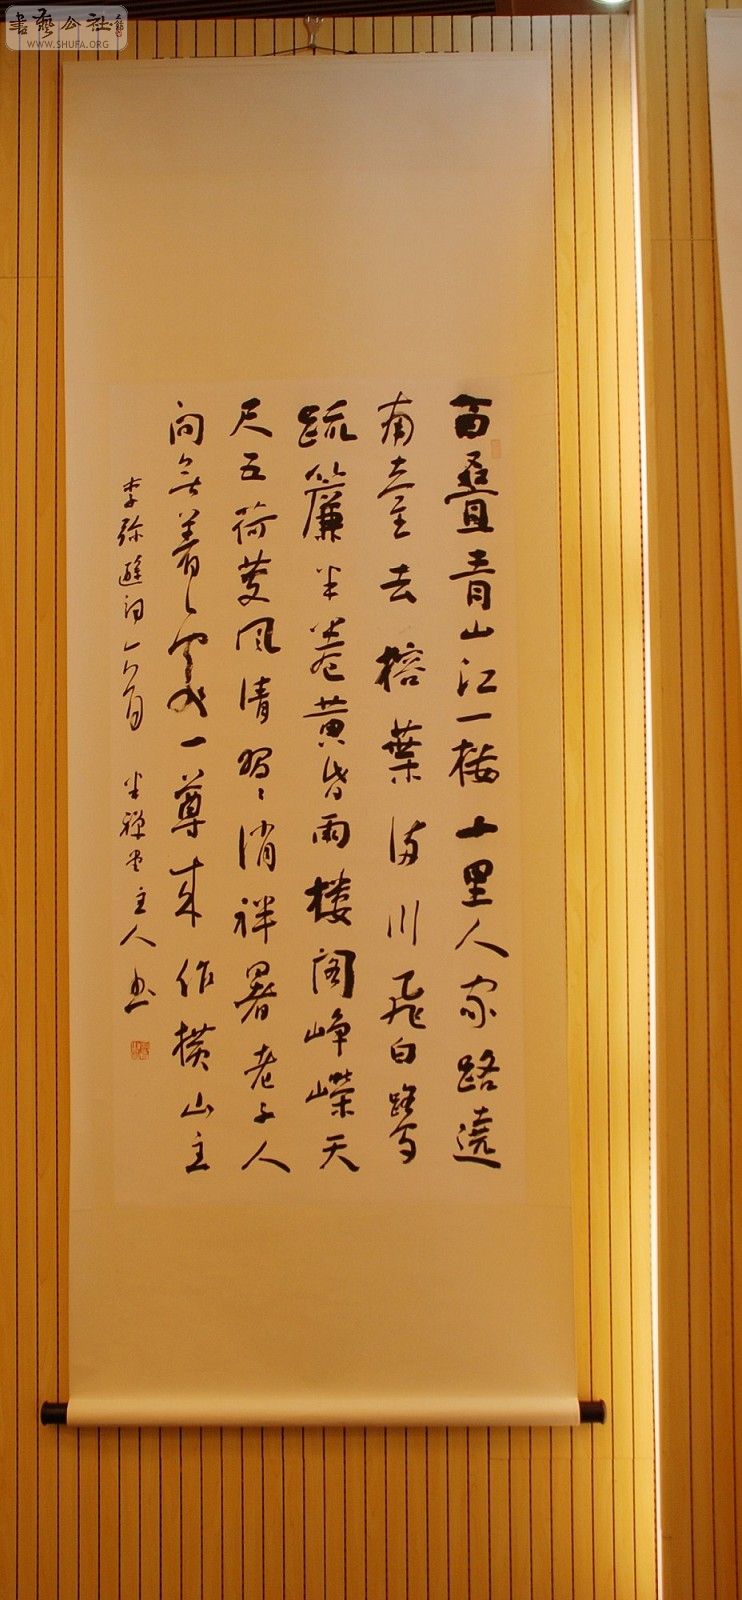 書藝公社
WWW.SHUFA.ORG
百疊青山江一樓十里人家路遶
南臺去榕葉满川飛白鹭
疏簾半卷黄昏雨楼阁峥嵘天
尺五荷芰風清習〻消袢暑老子人
间無着處一尊来作横山主
李弥遜詞一首 半禅堂主人书